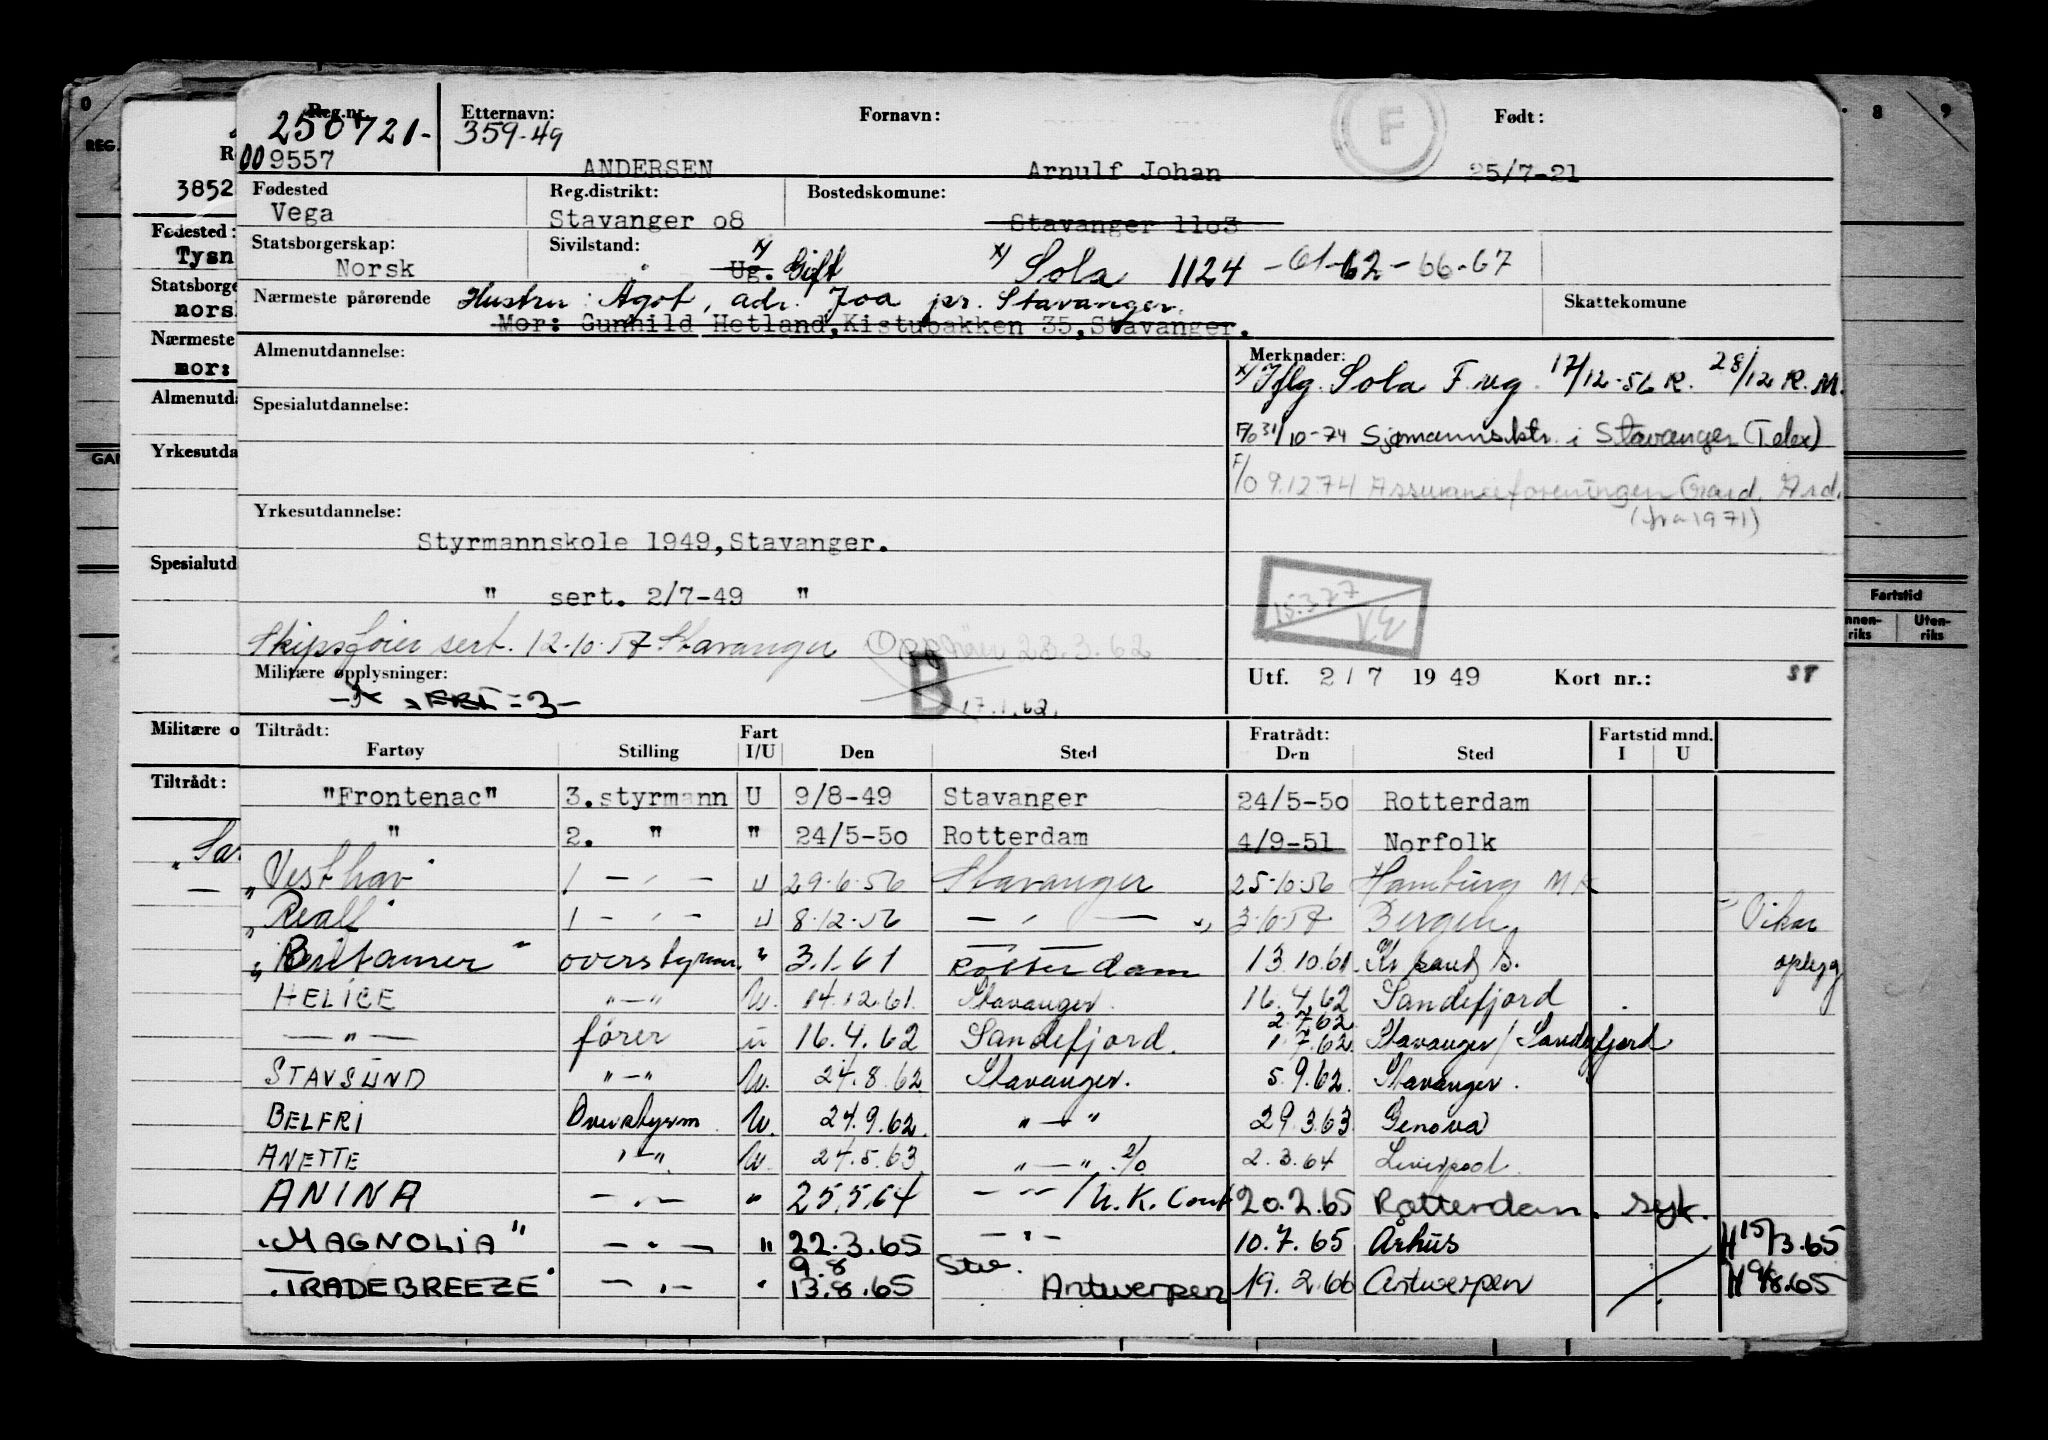 Reg.nr. Etternavn: Fornavn: Født:
250721- 359-49 F
009557 ANDERSEN Arnulf Johan 25/7-21
Fødested Reg.distrikt: Bostedskomune:
Vega Stavanger o8 Stavanger 11o3
Statsborgerskap: Sivilstand:
Norsk Ug. x) Gift x) Sola 1124 - 61-62-66-67
Nærmeste pårørende Hustru: Agot, adr. Joa pr. Stavanger. Skattekomune
Mor: Gunhild Hetland, Kistubakken 35, Stavanger.
Almenutdannelse: Merknader:
x) Iflg. Sola F. reg. 17/12-56 R. 28/12 R. M.
Spesialutdannelse:
F/o 31/10-74 Sjømannsktr. i Stavanger (Telex)
F/o 9.12.74 Assuranseforeningen Gard, Ard.
(fra 1971)
Yrkesutdannelse:
Styrmannskole 1949, Stavanger.
" sert. 2/7-49 "
15.377
Skipsfører sert. 12.10.57 Stavanger Opphør 23.3.62
Militære opplysninger: B 17.1.62. Utf. 2/7 1949 Kort nr.: 58
Tiltrådt: Fratrådt: Fartstid mnd.
Fartøy Stilling Fart I/U Den Sted Den Sted I U
"Frontenac" 3.styrmann U 9/8-49 Stavanger 24/5-5o Rotterdam
" 2. " " 24/5-5o Rotterdam 4/9-51 Norfolk
"Vesthav" 1 - " - u 29.6.56 Stavanger 25.10.56 Hamburg
"Reall" 1 - " - u 8.12.56 — " — 3.6.57 Bergen Vikar
"Britamer" overstyrm. " 3.1.61 Rotterdam 13.10.61 Kr.sand S. opplyg
HELICE "—" U. 14.12.61. Stavanger. 16.4.62 Sandefjord
2.7.62
— " — fører u 16.4.62 Sandefjord. 1.7.62. Stavanger/Sandefjord
STAVSUND "—" U. 24.8.62 Stavanger. 5.9.62. Stavanger.
BELFRI Overstyrm. U. 24.9.62. "—" 29.3.63 Genova
ANETTE "—" U. 24.5.63 "—" 2.3.64 Liverpool.
ANINA — " — " 25.5.64 — " — /U.K. Cont 20.2.65 Rotterdam. syk.
"MAGNOLIA" — " — " 22.3.65 — " — 10.7.65 Århus H 15/3.65
9.8 Stv.
"TRADEBREEZE" — " — " 13.8.65 Antwerpen 19.2.66 Antwerpen H 9/8.65
0
REG.
3852
Fødested:
Tysn
Statsborge
nors
Nærmeste
mor:
Almenutda
Yrkesutda
GAN
Spesialutd
Militære o
Tiltrådt:
8 9
Fartstid
Innen-riks Uten-riks